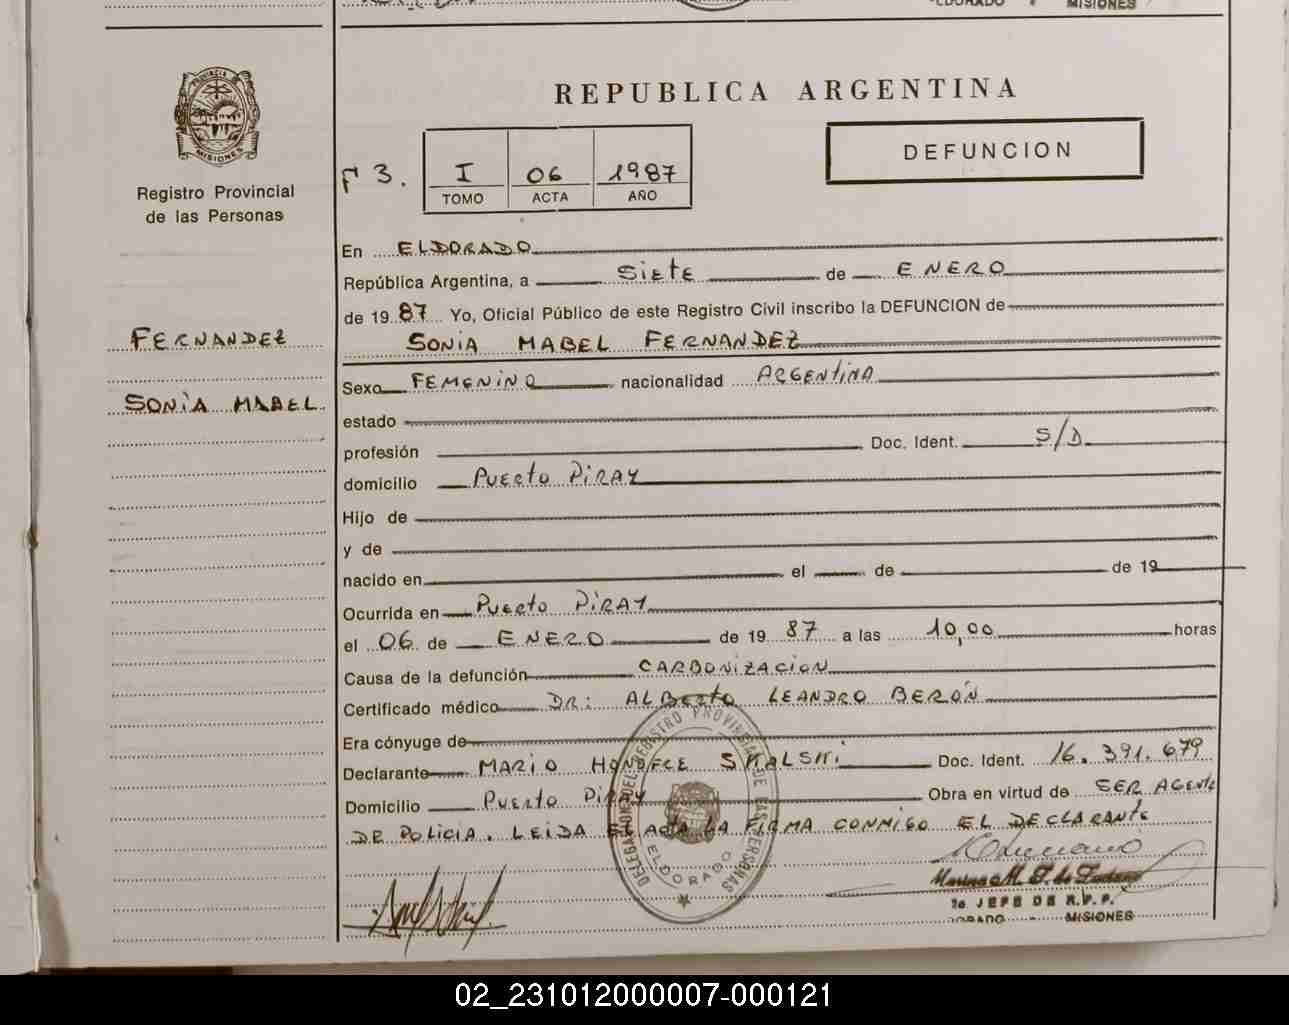 MISIONES
REPUBLICA ARGENTINA
PROVINCIA DE
MISIONES
Registro Provincial
de las Personas
F 3.
I
06
1987
TOMO
ACTA
AÑO
DEFUNCION
En ELDORADO
República Argentina, a SIETE de ENERO
de 1987 Yo, Oficial Público de este Registro Civil inscribo la DEFUNCION de
FERNANDEZ
SONIA MABEL FERNANDEZ
Sexo FEMENINO nacionalidad ARGENTINA
SONIA MABEL
estado
profesión Doc. Ident. S/D
domicilio Puerto Piray
Hijo de
y de
nacido en el de de 19
Ocurrida en Puerto Piray
el 06 de ENERO de 1987 a las 10,00 horas
Causa de la defunción CARBONIZACION
Certificado médico DR: ALBERTO LEANDRO BERÓN
Era cónyuge de
Declarante MARIO Doc. Ident. 16.391.679
Domicilio Puerto Piray Obra en virtud de SER AGENTE
DE POLICIA. LEIDA EL ACTA LA FIRMA CONMIGO EL DECLARANTE
DELEGACION DEL REGISTRO PROVINCIAL DE LAS PERSONAS
ELDORADO
JEFE DE R.P.P.
MISIONES
02_231012000007-000121